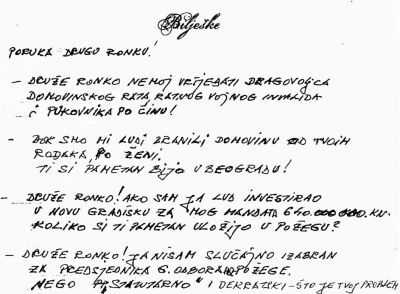 Bilješke
PORUKA DRUGU RONKU!
- DRUŽE RONKO NEMOJ VRIJEĐATI DRAGOVOLJCA
DOMOVINSKOG RATA, RATNOG VOJNOG INVALIDA
I PUKOVNIKA PO ČINU!
- DOK SMO MI LUDI BRANILI DOMOVINU OD TVOIH
ROĐAKA, PO ŽENI,
TI SI PAMETAN BIJO U BEOGRADU!
- DRUŽE RONKO! AKO SAM JA LUD INVESTIRAO
U NOVU GRADIŠKU ZA MOG MANDATA 640.000 000. KU.
KOLIKO SI TI PAMETAN ULOŽIJO U POŽEGU?
- DRUŽE RONKO! JA NISAM SLUČAJNO IZABRAN
ZA PREDSJEDNIKA G. ODBORA POŽEGE.
NEGO "STATUTARNO" I DEKRATSKI - ŠTO JE TVOJ